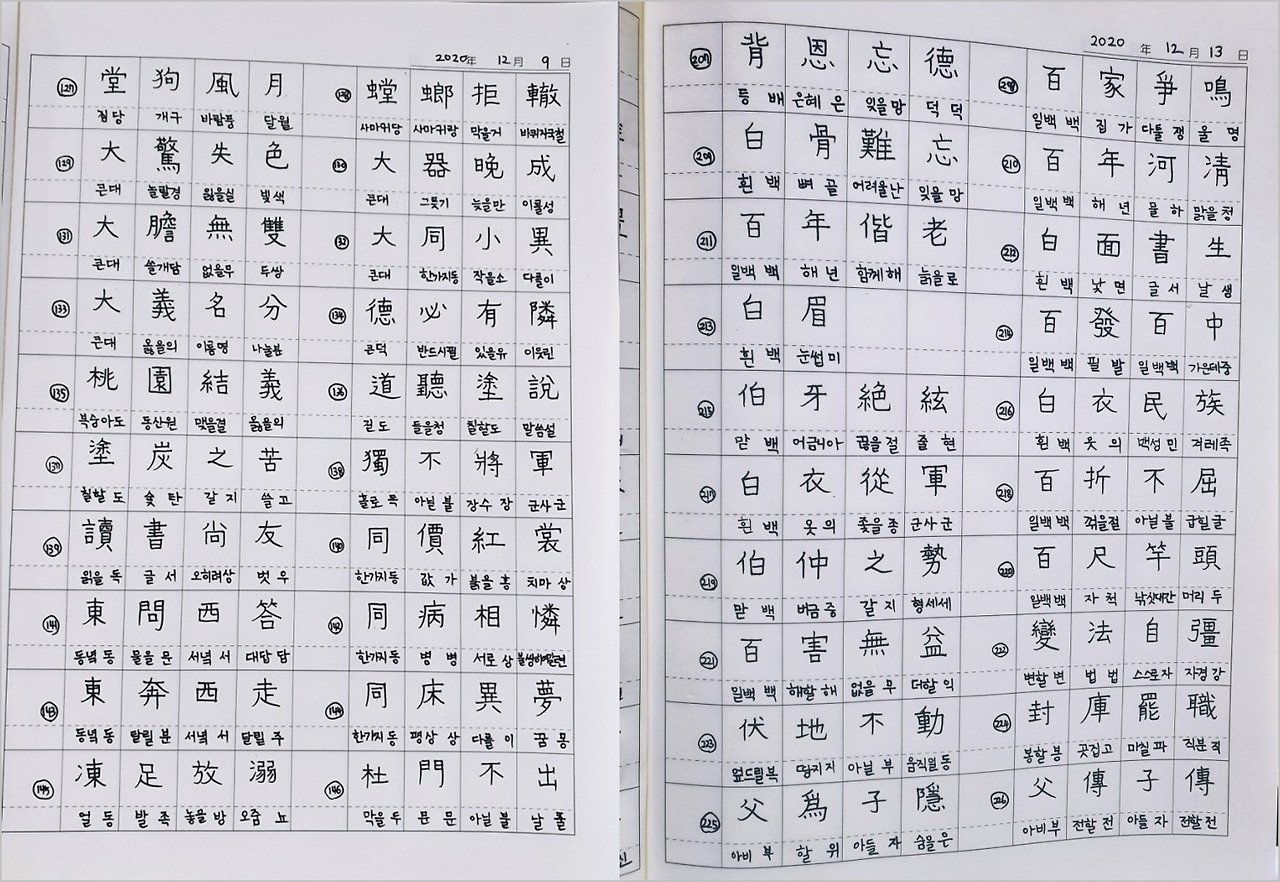 2020年 12月 9日
127 堂 狗 風 月 128 螳 螂 拒 轍
집당 개구 바람풍 달월 사마귀당 사마귀랑 막을거 바퀴자국철
129 大 驚 失 色 130 大 器 晩 成
큰대 놀랄경 잃을실 빛색 큰대 그릇기 늦을만 이룰성
131 大 膽 無 雙 132 大 同 小 異
큰대 쓸개담 없을무 두쌍 큰대 한가지동 작을소 다를이
133 大 義 名 分 134 德 必 有 隣
큰대 옳을의 이름명 나눌분 큰덕 반드시필 있을유 이웃린
135 桃 園 結 義 136 道 聽 塗 說
복숭아도 동산원 맺을결 옳을의 길도 들을청 칠할도 말씀설
137 塗 炭 之 苦 138 獨 不 將 軍
칠할 도 숯 탄 갈 지 쓸 고 홀로 독 아닐 불 장수 장 군사 군
139 讀 書 尙 友 140 同 價 紅 裳
읽을 독 글 서 오히려상 벗 우 한가지동 값 가 붉을 홍 치마 상
141 東 問 西 答 142 同 病 相 憐
동녘 동 물을 문 서녘 서 대답 답 한가지동 병 병 서로 상 불쌍히여길련
143 東 奔 西 走 144 同 床 異 夢
동녘 동 달릴 분 서녘 서 달릴 주 한가지동 평상 상 다를 이 꿈 몽
145 凍 足 放 溺 146 杜 門 不 出
얼 동 발 족 놓을 방 오줌 뇨 막을 두 문 문 아닐 불 날 출
2020 年 12 月 13 日
207 背 恩 忘 德 208 百 家 爭 鳴
등 배 은혜 은 잊을 망 덕 덕 일백 백 집 가 다툴 쟁 울 명
209 白 骨 難 忘 210 百 年 河 淸
흰 백 뼈 골 어려울난 잊을 망 일백 백 해 년 물 하 맑을 청
211 百 年 偕 老 212 白 面 書 生
일백 백 해 년 함께 해 늙을 로 흰 백 낯 면 글 서 날 생
213 白 眉 214 百 發 百 中
흰 백 눈썹 미 일백 백 필 발 일백 백 가운데중
215 伯 牙 絶 絃 216 白 衣 民 族
맏 백 어금니아 끊을 절 줄 현 흰 백 옷 의 백성 민 겨레족
217 白 衣 從 軍 218 百 折 不 屈
흰 백 옷 의 좇을 종 군사 군 일백 백 꺾을절 아닐 불 굽힐굴
219 伯 仲 之 勢 220 百 尺 竿 頭
맏 백 버금 중 갈 지 형세세 일백백 자 척 낚싯대간 머리 두
221 百 害 無 益 222 變 法 自 彊
일백 백 해할 해 없을 무 더할 익 변할 변 법 법 스스로자 자경 강
223 伏 地 不 動 224 封 庫 罷 職
엎드릴복 땅지지 아닐 부 움직일 동 봉할 봉 곳집고 마칠 파 직분 직
225 父 爲 子 隱 226 父 傳 子 傳
아비 부 할 위 아들 자 숨을 은 아비 부 전할 전 아들 자 전할 전